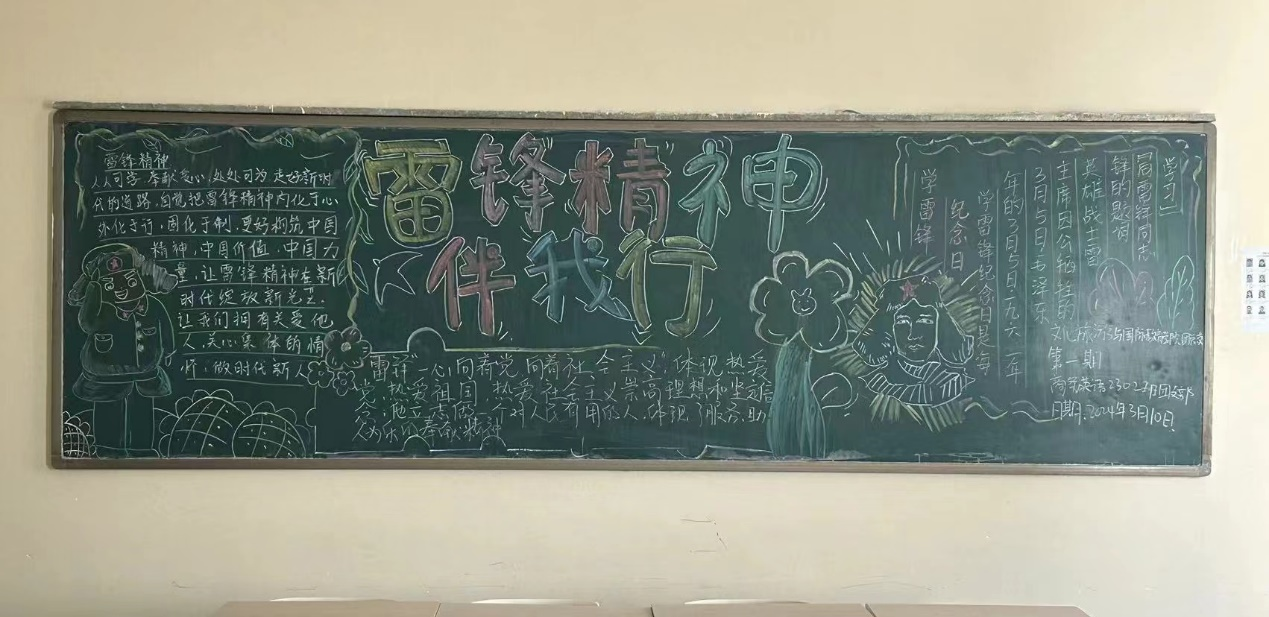 雷锋精神
人人可学，奉献爱心，处处可为，走好新时
代的道路，自觉把雷锋精神内化于心
外化于行，固化于制，更好构筑中国
精神，中国价值，中国力
量，让雷锋精神在新
时代绽放新光芒。
让我们拥有关爱他
人，关心集体的情
怀，做时代新人
雷锋精神
伴我行
雷锋“一心向着党，向着社会主义”体现热爱
党，热爱祖国，热爱社会主义崇高理想和坚定信
念；他立志做一个对人民有用的人，体现了服务，助
人为乐的奉献精神
学雷锋
纪念日
学雷锋纪念日是每
年的3月5日，一九六一年
3月5日，毛泽东
主席因公牺牲的
英雄战士雷
锋的题词
学习
文化旅游与国际教育学院团总支
第一期
商务英语23023班团支部
日期：2024年3月10日